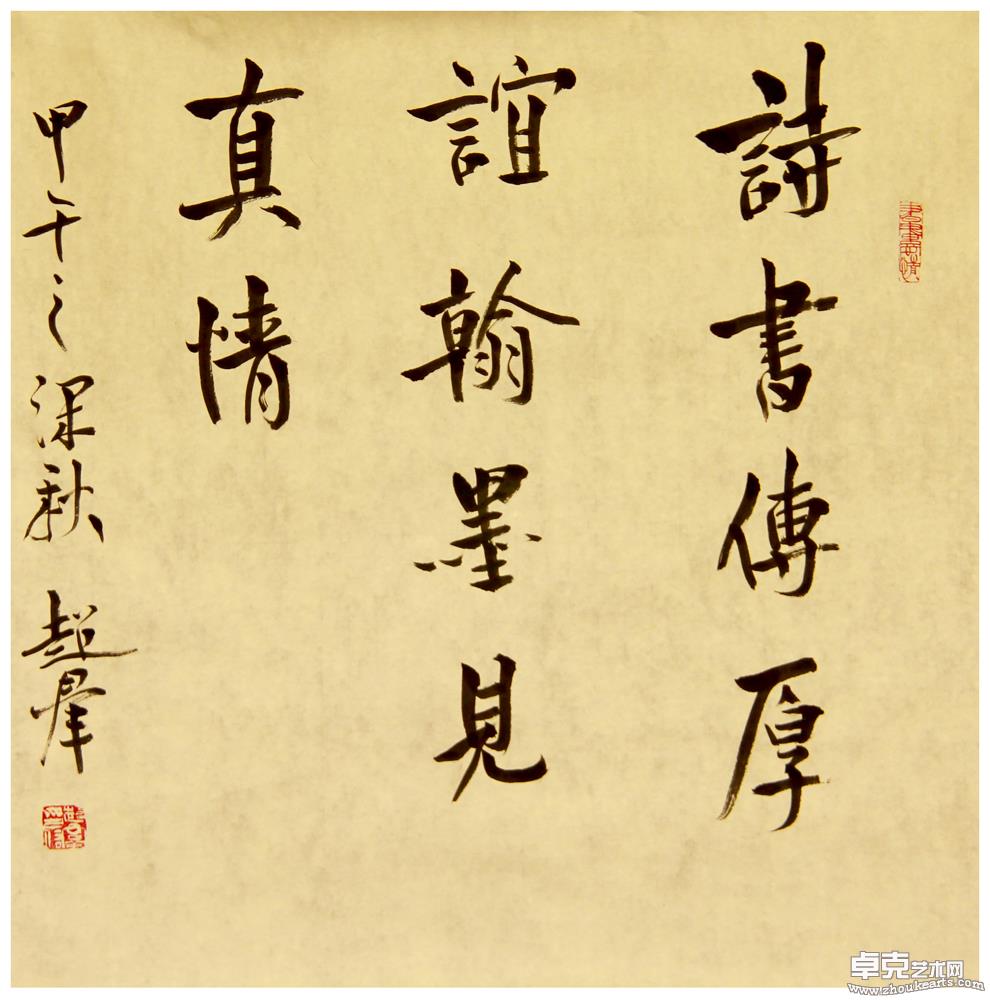 詩書傳厚
誼翰墨見
真情
甲午之深秋 超羣
卓克艺术网
www.zhoukearts.com